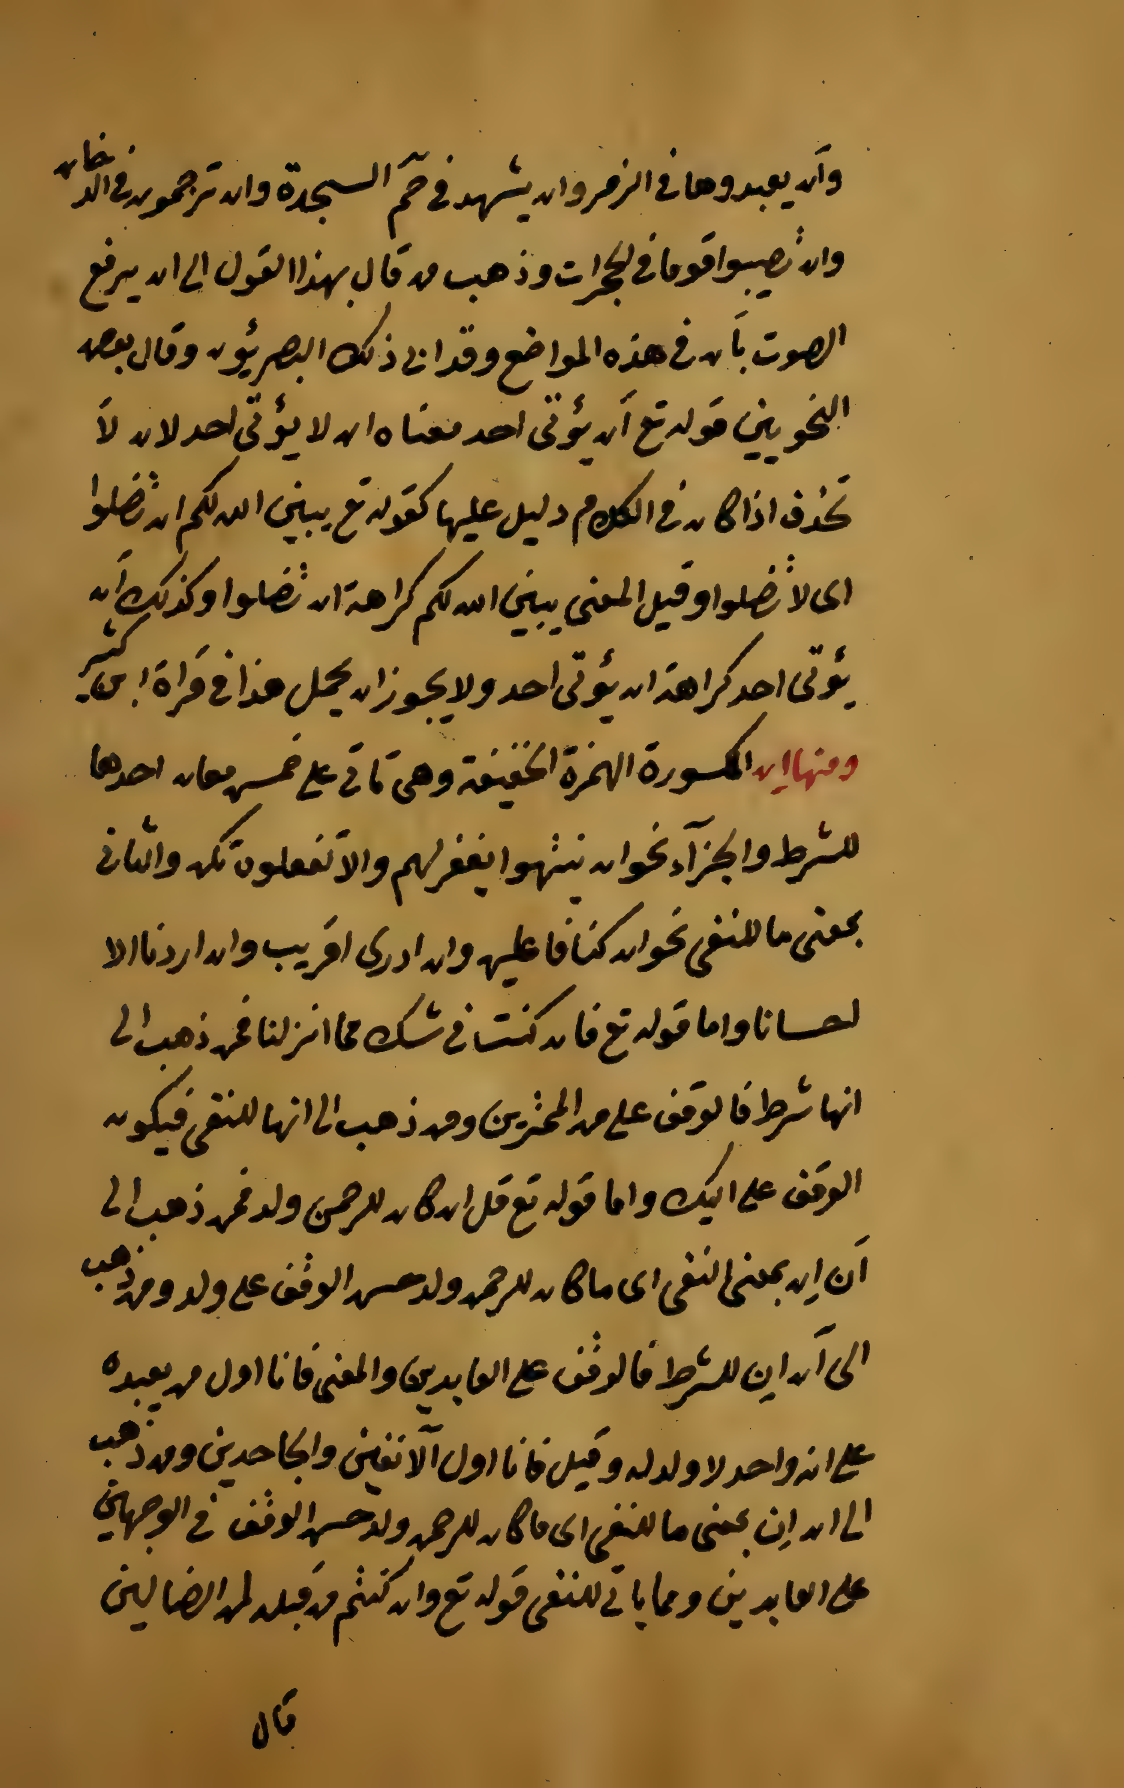 وأن يعبدوها في الزمر وان يشهد في حم السجدة وان ترجمون في الدخان
وان تصيبوا قوما في الحجرات وذهب من قال بهذا القول الى ان يرفع
الصوت بأن في هذه المواضع وقد ابى ذلك البصريُون وقال بعض
النحويين قوله تع أن يؤتى احد معناه ان لا يؤتى احد لان لا
تحذف اذا كان في الكلام دليل عليها كقوله تع يبين الله لكم ان تضلوا
اى لا تضلوا وقيل المعنى يبين الله لكم كراهة ان تضلوا وكذلك أن
يؤتى احد كراهة ان يؤتى احد ولا يجوز ان يحمل هذا في قراة ابن كثير
ومنها اِن المكسورة الهمزة الخفيفة وهى تاتى على خمس معان احدها
للشرط والجزآء نحو ان ينتهوا يغفر لهم والا تفعلوه تكن والثانى
بمعنى ما للنفى نحو ان كنا فاعلين وان ادرى اقريب وان اردنا الا
احسانا واما قوله تع فان كنت في شك مما انزلنا فمن ذهب الى
انها شرط فالوقف على من الممترين ومن ذهب الى انها للنفى فيكون
الوقف على اليك واما قوله تع قل ان كان للرحمن ولد فمن ذهب الى
أن اِن بمعنى النفى اى ما كان للرحمن ولد حسن الوقف على ولد ومن ذهب
الى أن اِن للشرط فالوقف على العابدين والمعنى فانا اول من يعبده
على انه واحد لا ولد له وقيل فانا اول الآنفين والجاحدين ومن ذهب
الى ان اِن بمعنى ما للنفى اى ما كان للرحمن ولد حسن الوقف في الوجهين
على العابدين ومما ياتى للنفى قوله تع وان كنتم من قبله لمن الضالين
قال